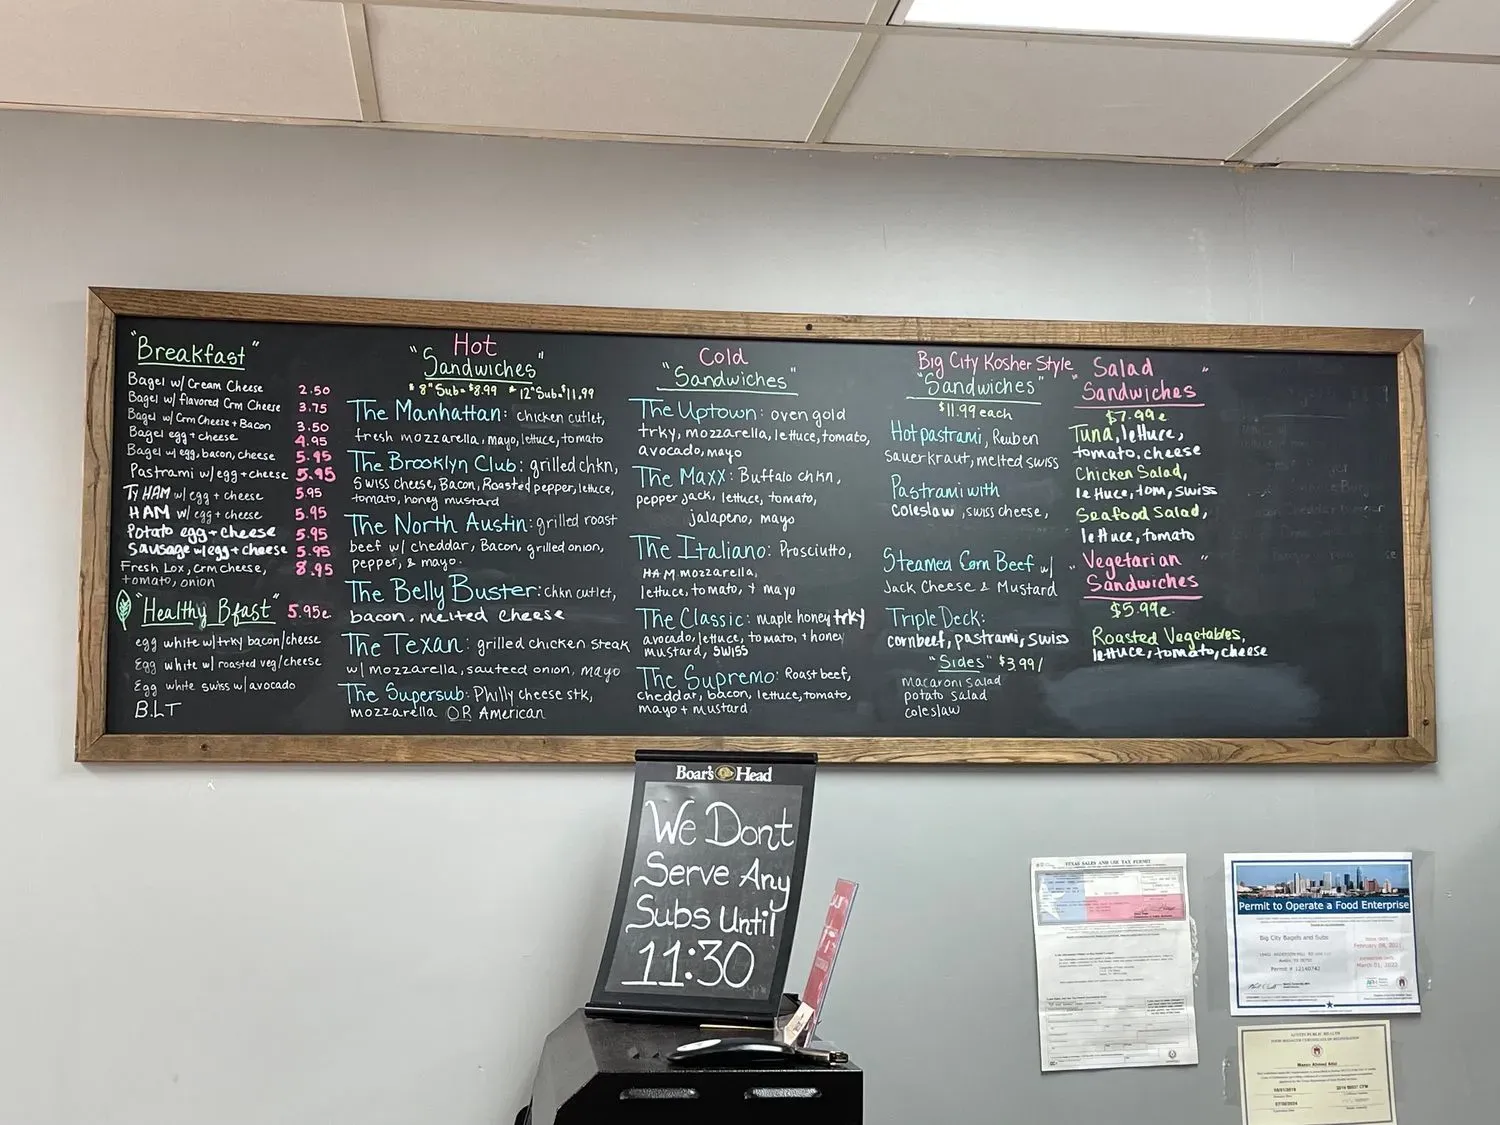 "Breakfast"
Bagel w/ Cream Cheese 2.50
Bagel w/ flavored Crm Cheese 3.75
Bagel w/ Crm Cheese + Bacon 3.50
Bagel egg + cheese 4.95
Bagel w/ egg, bacon, cheese 5.95
Pastrami w/ egg + cheese 5.95
Ty HAM w/ egg + cheese 5.95
HAM w/ egg + cheese 5.95
Potato egg + cheese 5.95
Sausage w/ egg + cheese 5.95
Fresh Lox, Crm Cheese, 8.95
tomato, onion
"Healthy Bfast" 5.95e
egg white w/ trky bacon/cheese
Egg white w/ roasted veg/cheese
Egg white swiss w/ avocado
B.L.T
Hot
"Sandwiches"
* 8" Sub = $8.99 * 12" Sub = $11.99
The Manhattan: chicken cutlet,
fresh mozzarella, mayo, lettuce, tomato
The Brooklyn Club: grilled chkn,
Swiss cheese, Bacon, Roasted pepper, lettuce,
tomato, honey mustard
The North Austin: grilled roast
beef w/ cheddar, Bacon, grilled onion,
pepper, & mayo.
The Belly Buster: chkn cutlet,
bacon, melted cheese
The Texan: grilled chicken steak
w/ mozzarella, sauteed onion, mayo
The Supersub: Philly cheese stk,
mozzarella OR American
Cold
"Sandwiches"
The Uptown: oven gold
trky, mozzarella, lettuce, tomato,
avocado, mayo
The Maxx: Buffalo chkn,
pepper jack, lettuce, tomato,
jalapeno, mayo
The Italiano: Prosciutto,
HAM mozzarella,
lettuce, tomato, + mayo
The Classic: maple honey trky
avocado, lettuce, tomato, + honey
mustard, swiss
The Supremo: Roast beef,
cheddar, bacon, lettuce, tomato,
mayo + mustard
Big City Kosher Style
"Sandwiches"
$11.99 each
Hot pastrami, Reuben
sauerkraut, melted swiss
Pastrami with
coleslaw, swiss cheese,
Steamed Corn Beef w/
Jack Cheese & Mustard
Triple Deck:
cornbeef, pastrami, swiss
"Sides" $3.99/
macaroni salad
potato salad
coleslaw
Salad
"Sandwiches"
$7.99e
Tuna, lettuce,
tomato, cheese
Chicken Salad,
lettuce, tom, swiss
Seafood Salad,
lettuce, tomato
"Vegetarian"
Sandwiches
$5.99e.
Roasted Vegetables,
lettuce, tomato, cheese
Boar's Head
We Dont
Serve Any
Subs Until
11:30
TEXAS SALES AND USE TAX PERMIT
Permit to Operate a Food Enterprise
Big City Bagels and Subs
Permit # 12140742
March 01, 2022